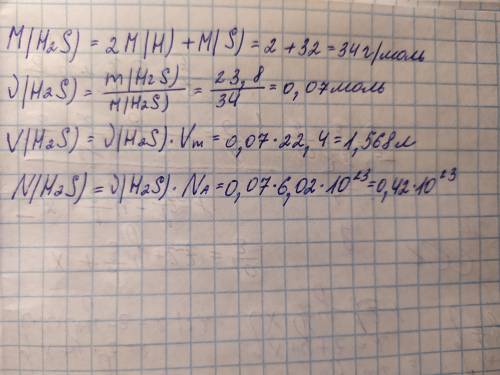 M(H₂S) = 2M(H) + M(S) = 2 + 32 = 34 г/моль
ν(H₂S) = m(H₂S)/M(H₂S) = 23,8/34 = 0,07 моль
V(H₂S) = ν(H₂S) · Vm = 0,07 · 22,4 = 1,568 л
N(H₂S) = ν(H₂S) · NA = 0,07 · 6,02 · 10²³ = 0,42 · 10²³